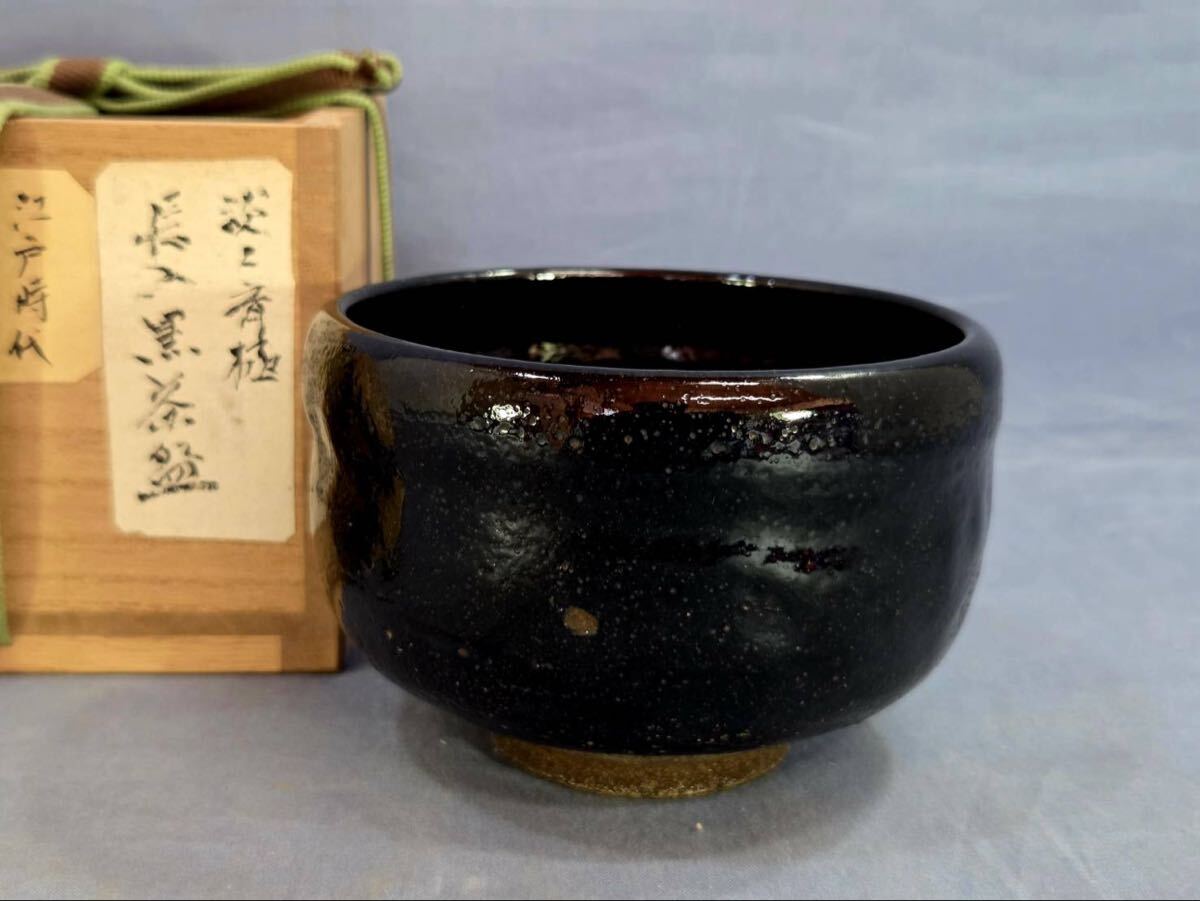 淡々斎極
長入黒茶盌
江戸時代